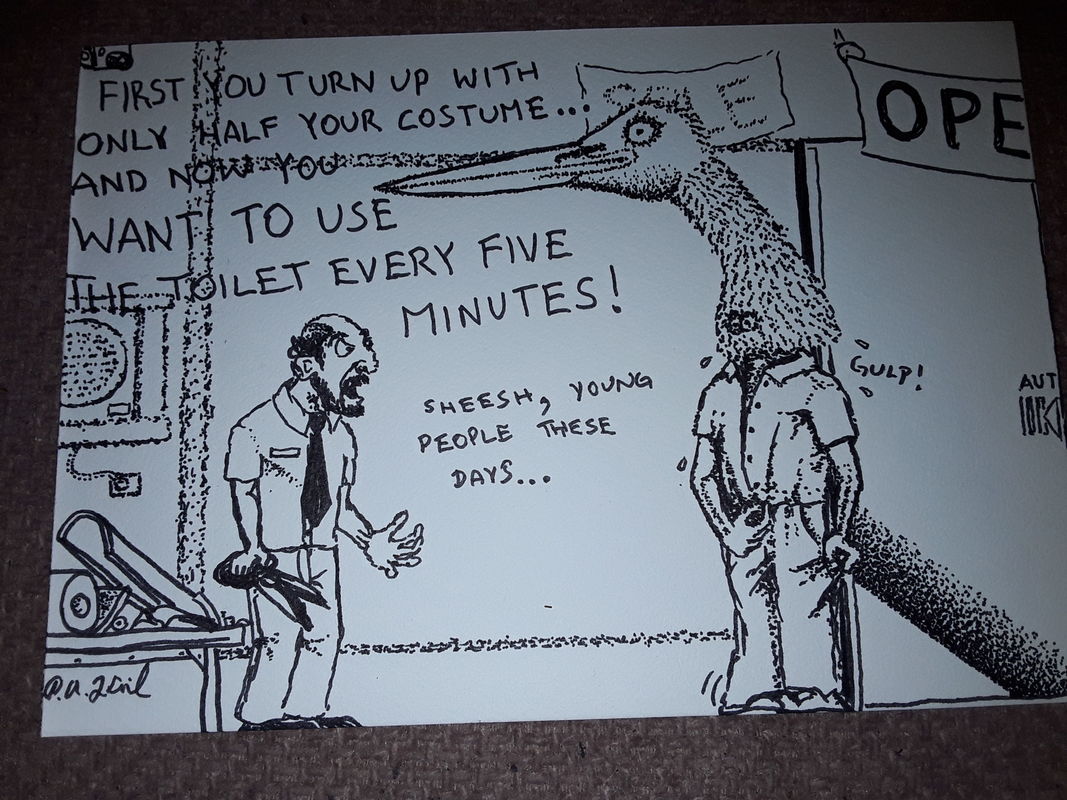 FIRST YOU TURN UP WITH
ONLY HALF YOUR COSTUME...
AND NOW YOU
WANT TO USE
THE TOILET EVERY FIVE
MINUTES!
SHEESH, YOUNG
PEOPLE THESE
DAYS...
GULP!
OPE
AUT